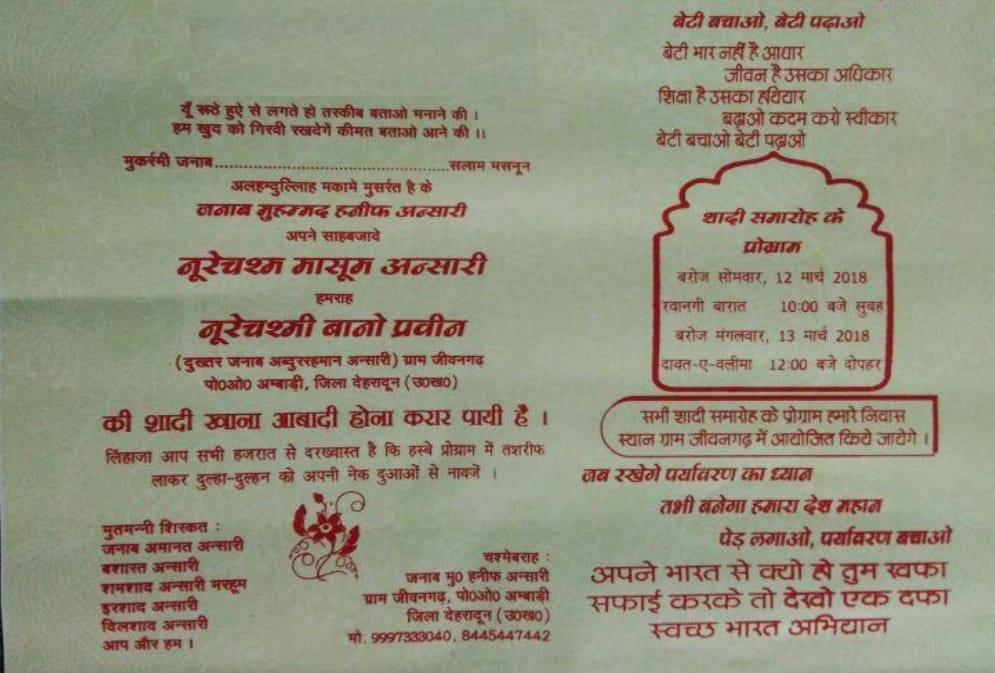 यूँ रूठे हुऐ से लगते हो तरकीब बताओ मनाने की ।
हम खुद को गिरवी रखदेगें कीमत बताओ आने की ।।
मुकर्रमी जनाब..........................................सलाम मसनून
अलहम्दुल्लिाह मकामे मुसर्रत है के
जनाब मुहम्मद हनीफ अन्सारी
अपने साहबजादे
नूरेचश्म मासूम अन्सारी
हमराह
नूरेचश्मी बानो प्रवीन
(दुख्तर जनाब अब्दुररहमान अन्सारी) ग्राम जीवनगढ़
पो0ओ0 अम्बाड़ी, जिला देहरादून (उ0ख0)
की शादी खाना आबादी होना करार पायी है ।
लिहाजा आप सभी हजरात से दरख्वास्त है कि हस्बे प्रोग्राम में तशरीफ
लाकर दुल्हा-दुल्हन को अपनी नेक दुआओं से नावजें ।
मुतमन्नी शिरकत :
जनाब अमानत अन्सारी
बशारत अन्सारी
शमशाद अन्सारी मरहूम
इरशाद अन्सारी
दिलशाद अन्सारी
आप और हम ।
चश्मेबराह :
जनाब मु0 हनीफ अन्सारी
ग्राम जीवनगढ़, पो0ओ0 अम्बाड़ी
जिला देहरादून (उ0ख0)
मो. 9997333040, 8445447442
बेटी बचाओ, बेटी पढ़ाओ
बेटी भार नहीं है आधार
जीवन है उसका अधिकार
शिक्षा है उसका हथियार
बढ़ाओ कदम करो स्वीकार
बेटी बचाओ बेटी पढ़ाओ
शादी समारोह के
प्रोग्राम
बरोज सोमवार, 12 मार्च 2018
रवानगी बारात 10:00 बजे सुबह
बरोज मंगलवार, 13 मार्च 2018
दावत-ए-वलीमा 12:00 बजे दोपहर
सभी शादी समारोह के प्रोग्राम हमारे निवास
स्थान ग्राम जीवनगढ़ में आयोजित किये जायेगे ।
जब रखेगे पर्यावरण का ध्यान
तभी बनेगा हमारा देश महान
पेड़ लगाओ, पर्यावरण बचाओ
अपने भारत से क्यो हो तुम खफा
सफाई करके तो देखो एक दफा
स्वच्छ भारत अभियान